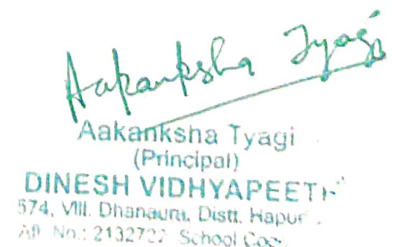 Aakanksha Tyagi
Aakanksha Tyagi
(Principal)
DINESH VIDHYAPEETH
574, Vill. Dhanaura, Distt. Hapur
Aff. No.: 2132722 School